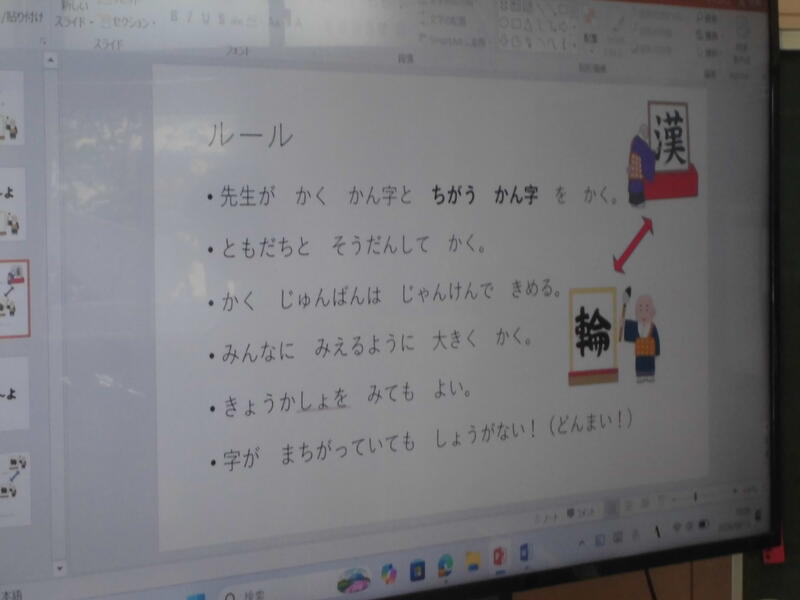 貼り付け
新しい
スライド
セクション
スライド
フォント
段落
ルール
漢
• 先生が かく かん字と ちがう かん字 を かく。
• ともだちと そうだんして かく。
• かく じゅんばんは じゃんけんで きめる。
輪
• みんなに みえるように 大きく かく。
• きょうかしょを みても よい。
• 字が まちがっていても しょうがない！（どんまい！）
ノート
コメント
検索